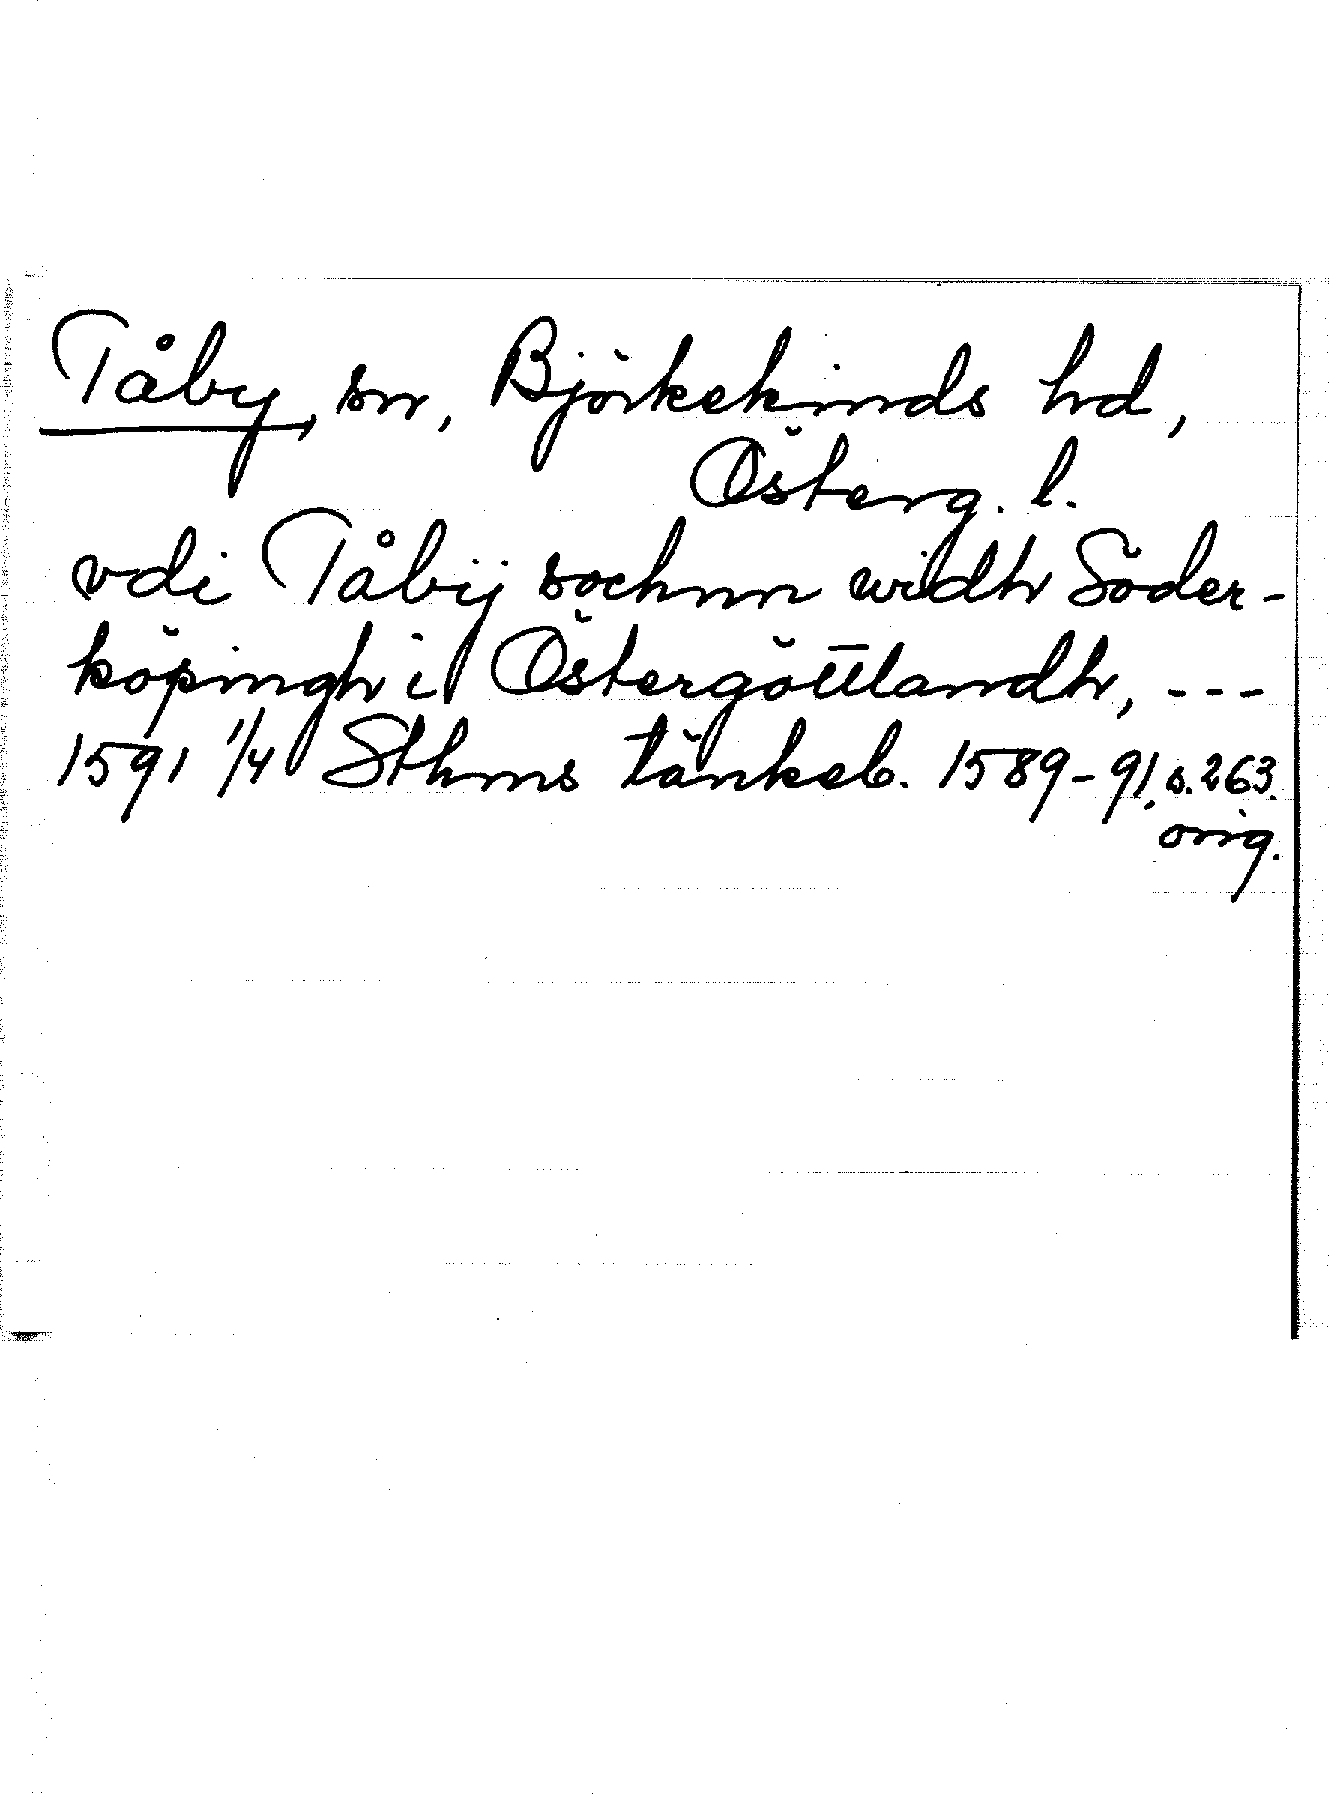 Tåby, sn, Björkekinds hd,
Österg. l.
vdi Tåbij sochnn widh Söder-
köpingh i Östergöttlandh, ---
1591 1/4 Sthms tänkeb. 1589-91, s. 263.
orig.